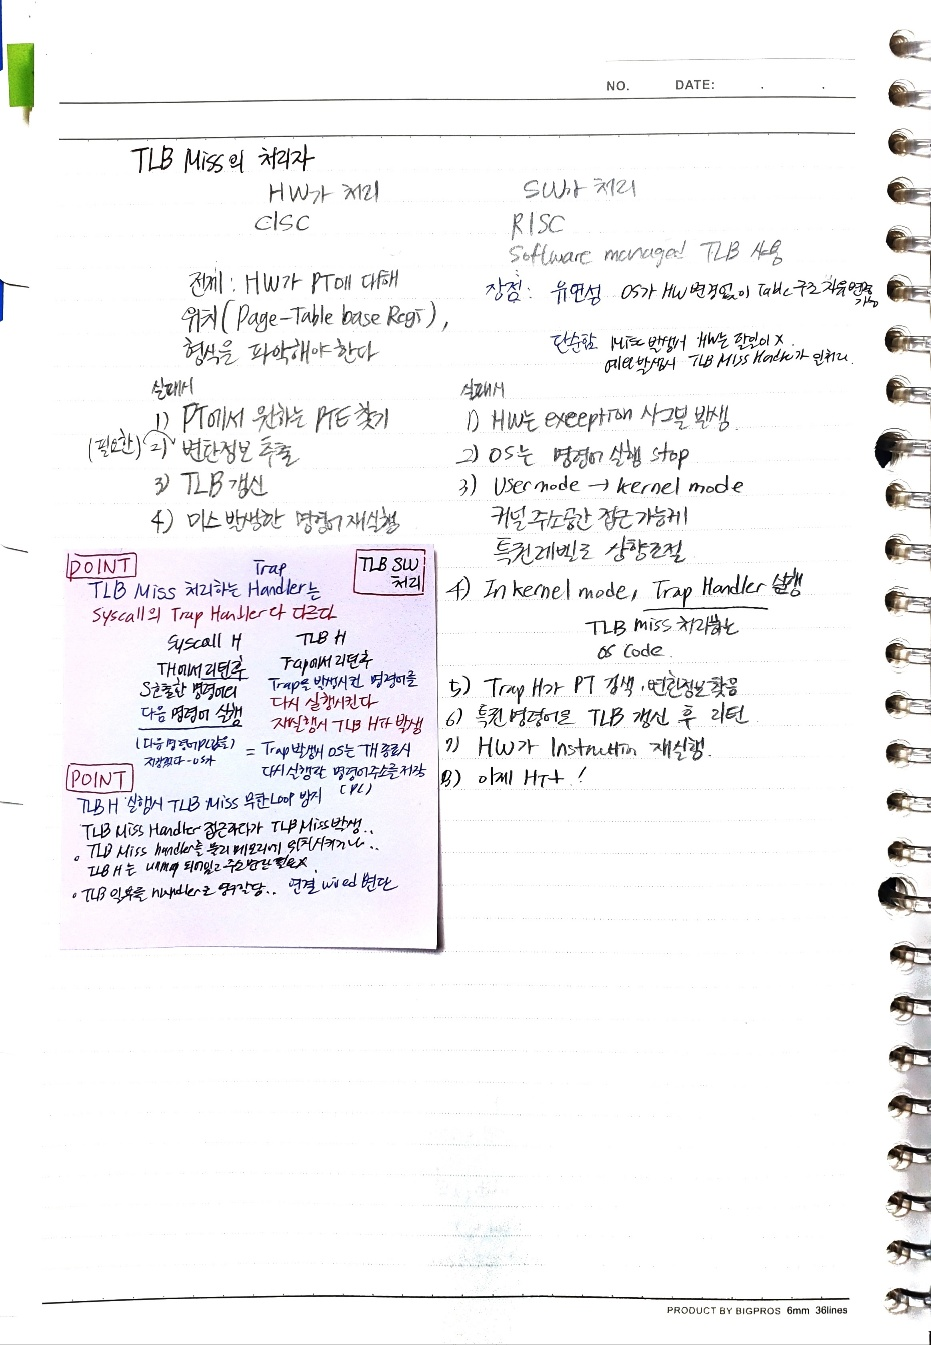 NO. DATE: . .
TLB Miss의 처리자
HW가 처리
CISC
전제 : HW가 PT에 대해
위치 (Page-Table base Regi),
형식을 파악해야한다
실패시
1) PT에서 원하는 PTE 찾기
(필요한) 2) 변환정보 추출
3) TLB 갱신
4) 미스 발생한 명령어 재실행
SW가 처리
RISC
Software managed TLB 사용
장점 : 유연성 OS가 HW 변경없이 Table 구조 자유 변경
가능
단순함 Miss 발생시 HW는 할일이 X.
예외 발생시 TLB Miss Handler가
실패시
1) HW는 exception 시그널 발생
2) OS는 명령어 실행 stop
3) User mode → kernel mode
커널 주소공간 접근 가능케
특권레벨로 상향조절
4) In kernel mode, Trap Handler 실행
TLB miss 처리하는
OS Code.
5) Trap H가 PT 검색, 변환정보 찾음
6) 특권명령어로 TLB 갱신 후 리턴
7) HW가 Instruction 재실행.
8) 이제 Hit !
POINT
TLB SW
처리
Trap
TLB Miss 처리하는 Handler는
Syscall의 Trap Handler다 다르다
Syscall H
TH에서 리턴후
S호출한 명령어의
다음 명령어 실행
(다음 명령어
TLB H
Trap에서 리턴후
Trap을 발생시킨 명령어를
다시 실행시킨다
재실행시 TLB H가 발생
= Trap 발생시 OS는 TH 종료시
다시 실행할 명령어 주소를 저장
(PC)
POINT
TLB H 실행시 TLB Miss 무한 Loop 방지
TLB Miss Handler 접근하다가 TLB Miss 발생..
• TLB Miss handler를 물리 메모리에 위치시키거나..
TLB H는 unmap 되어있고 주소 변환 필요X.
• TLB 일부를 handler로 영구할당.. 연결 wired 변환
PRODUCT BY BIGPROS 6mm 36lines